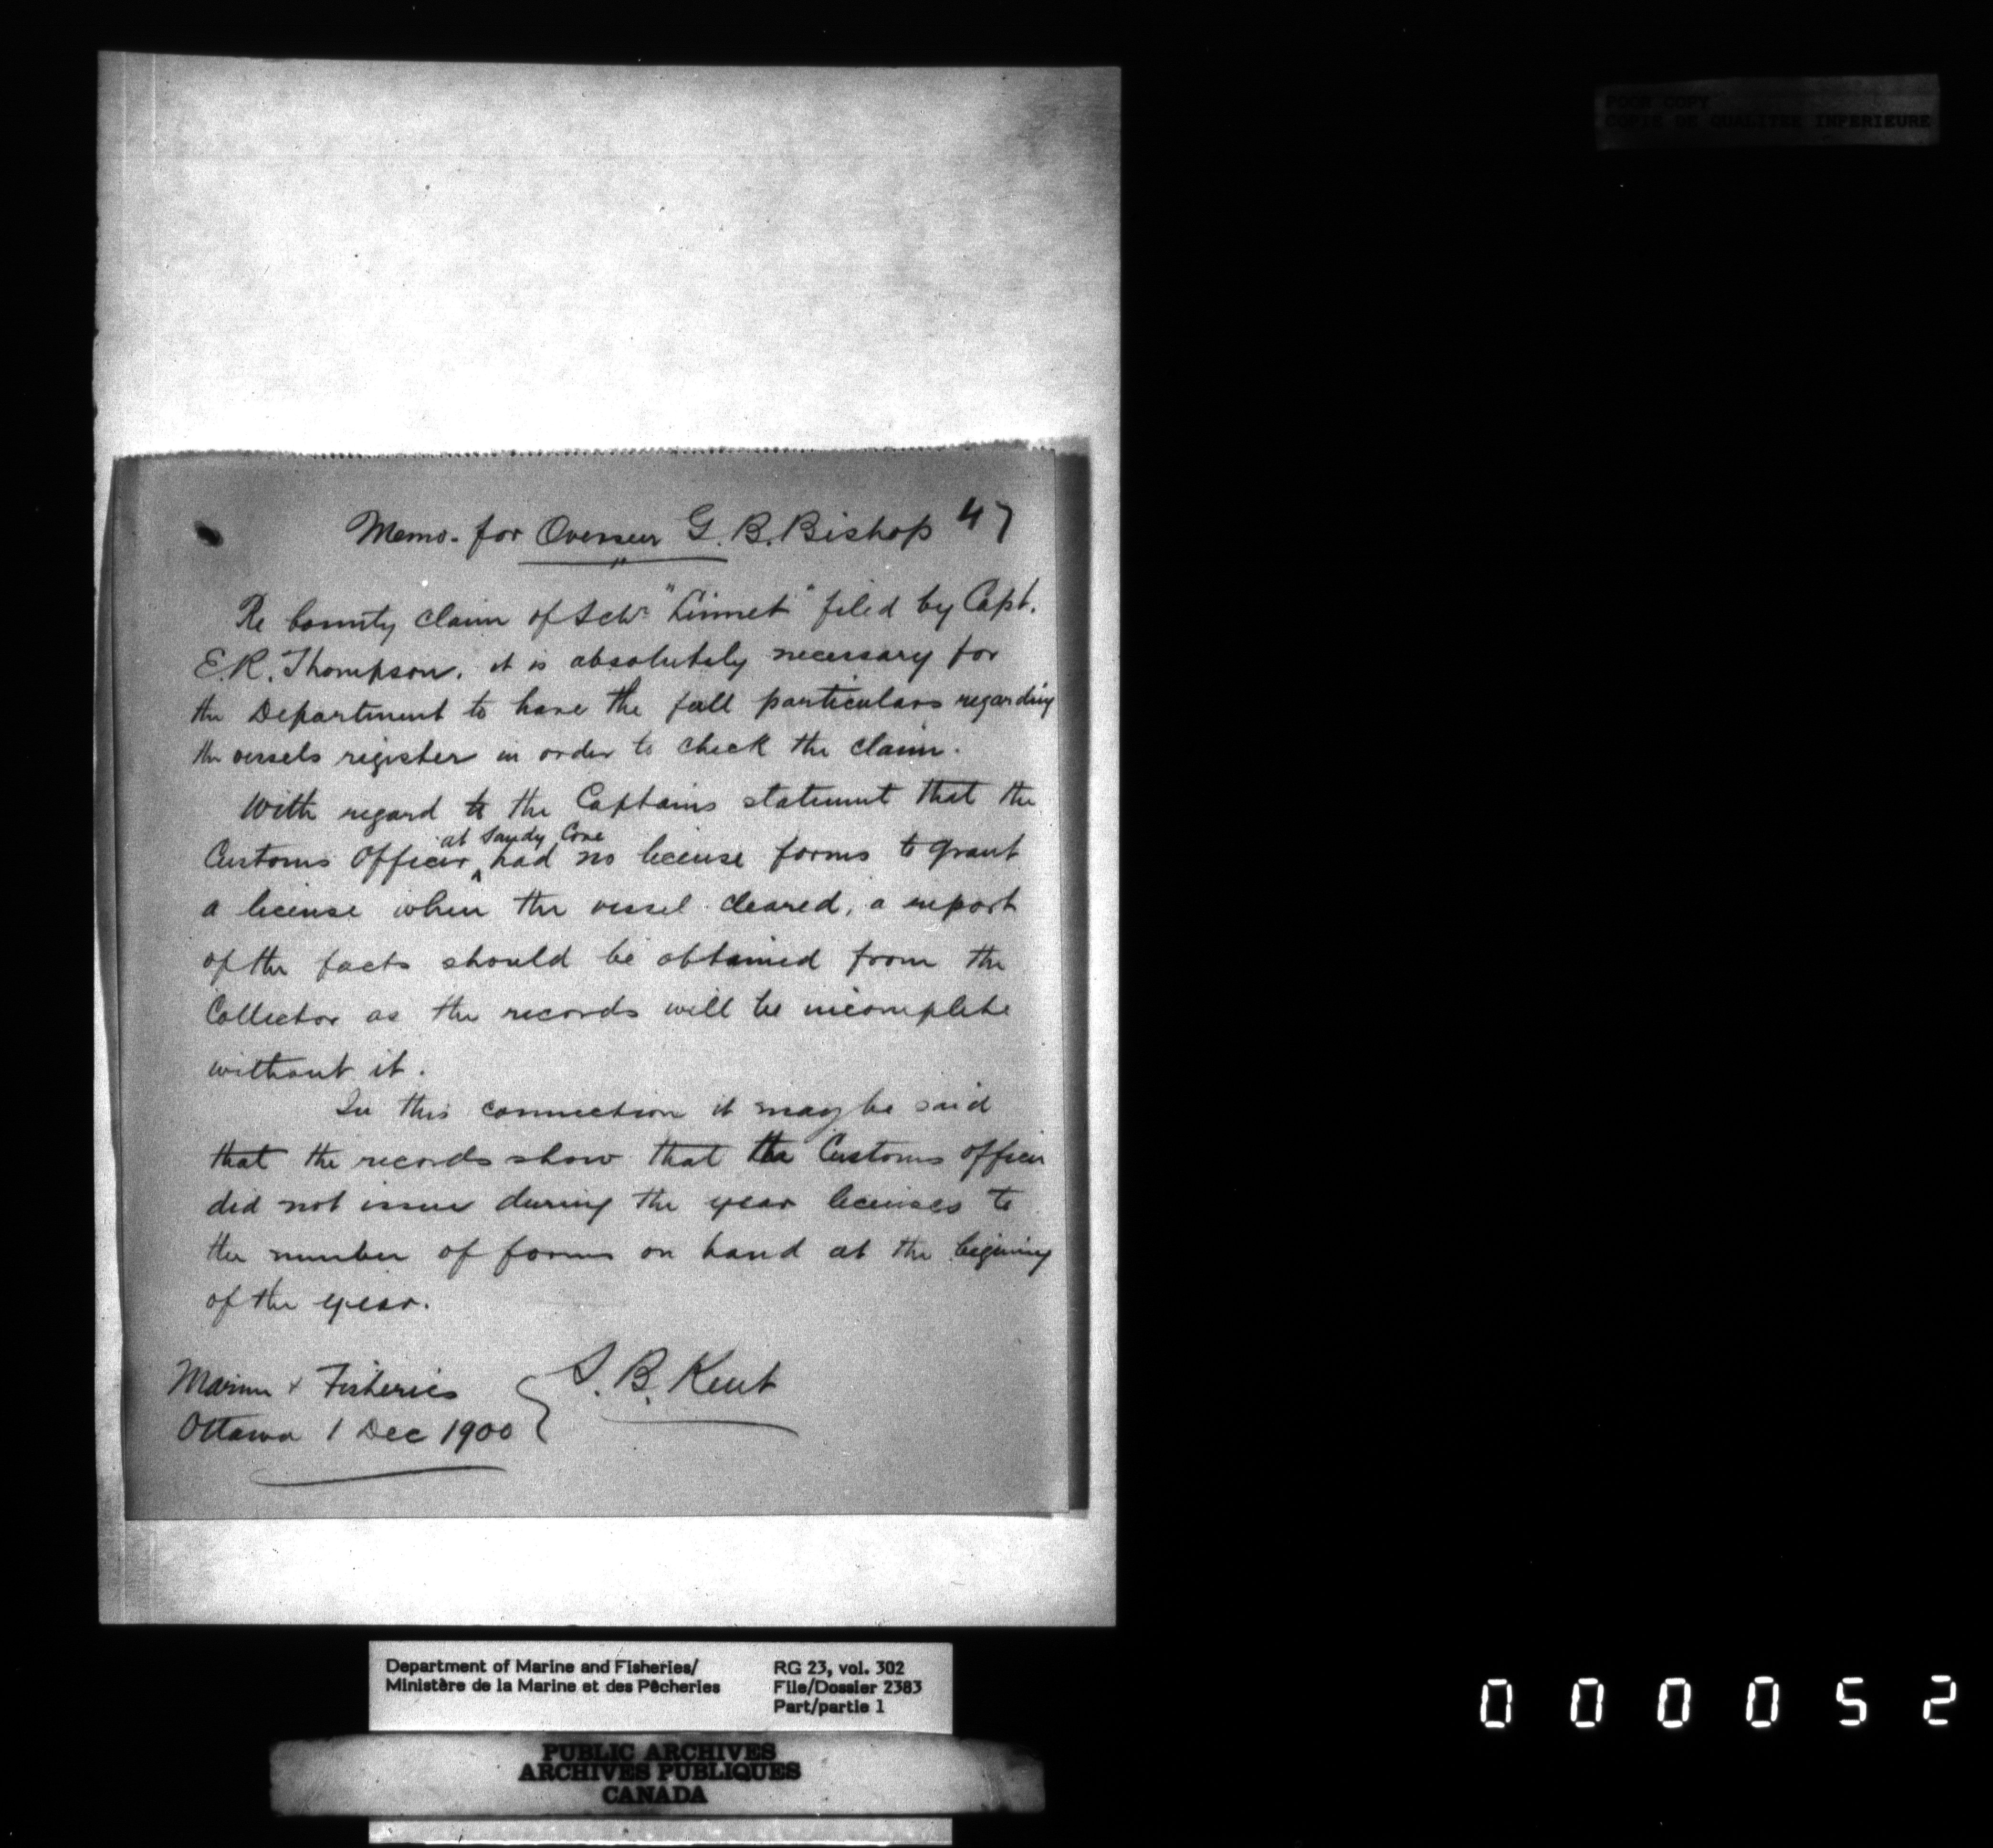 POOR COPY
COPIE DE QUALITEE INFERIEURE
Memo. for Overseer G. B. Bishop 47
Re bounty claim of Schr "Linnet" filed by Capt.
E.R. Thompson. it is absolutely necessary for
the Department to have the full particulars regarding
the vessels register in order to check the claim.
With regard to the Captains statement that the
at Sandy Cove
Customs Officer ^ had no license forms to grant
a license when the vessel cleared, a report
of the facts should be obtained from the
Collector as the records will be incomplete
without it.
In this connection it may be said
that the records show that the Customs officer
did not issue during the year licenses to
the number of forms on hand at the begining
of the year.
Marine & Fisheries
Ottawa 1 Dec 1900
S. B. Kent
Department of Marine and Fisheries/
Ministère de la Marine et des Pêcheries
RG 23, vol. 302
File/Dossier 2383
Part/partie 1
PUBLIC ARCHIVES
ARCHIVES PUBLIQUES
CANADA
000052